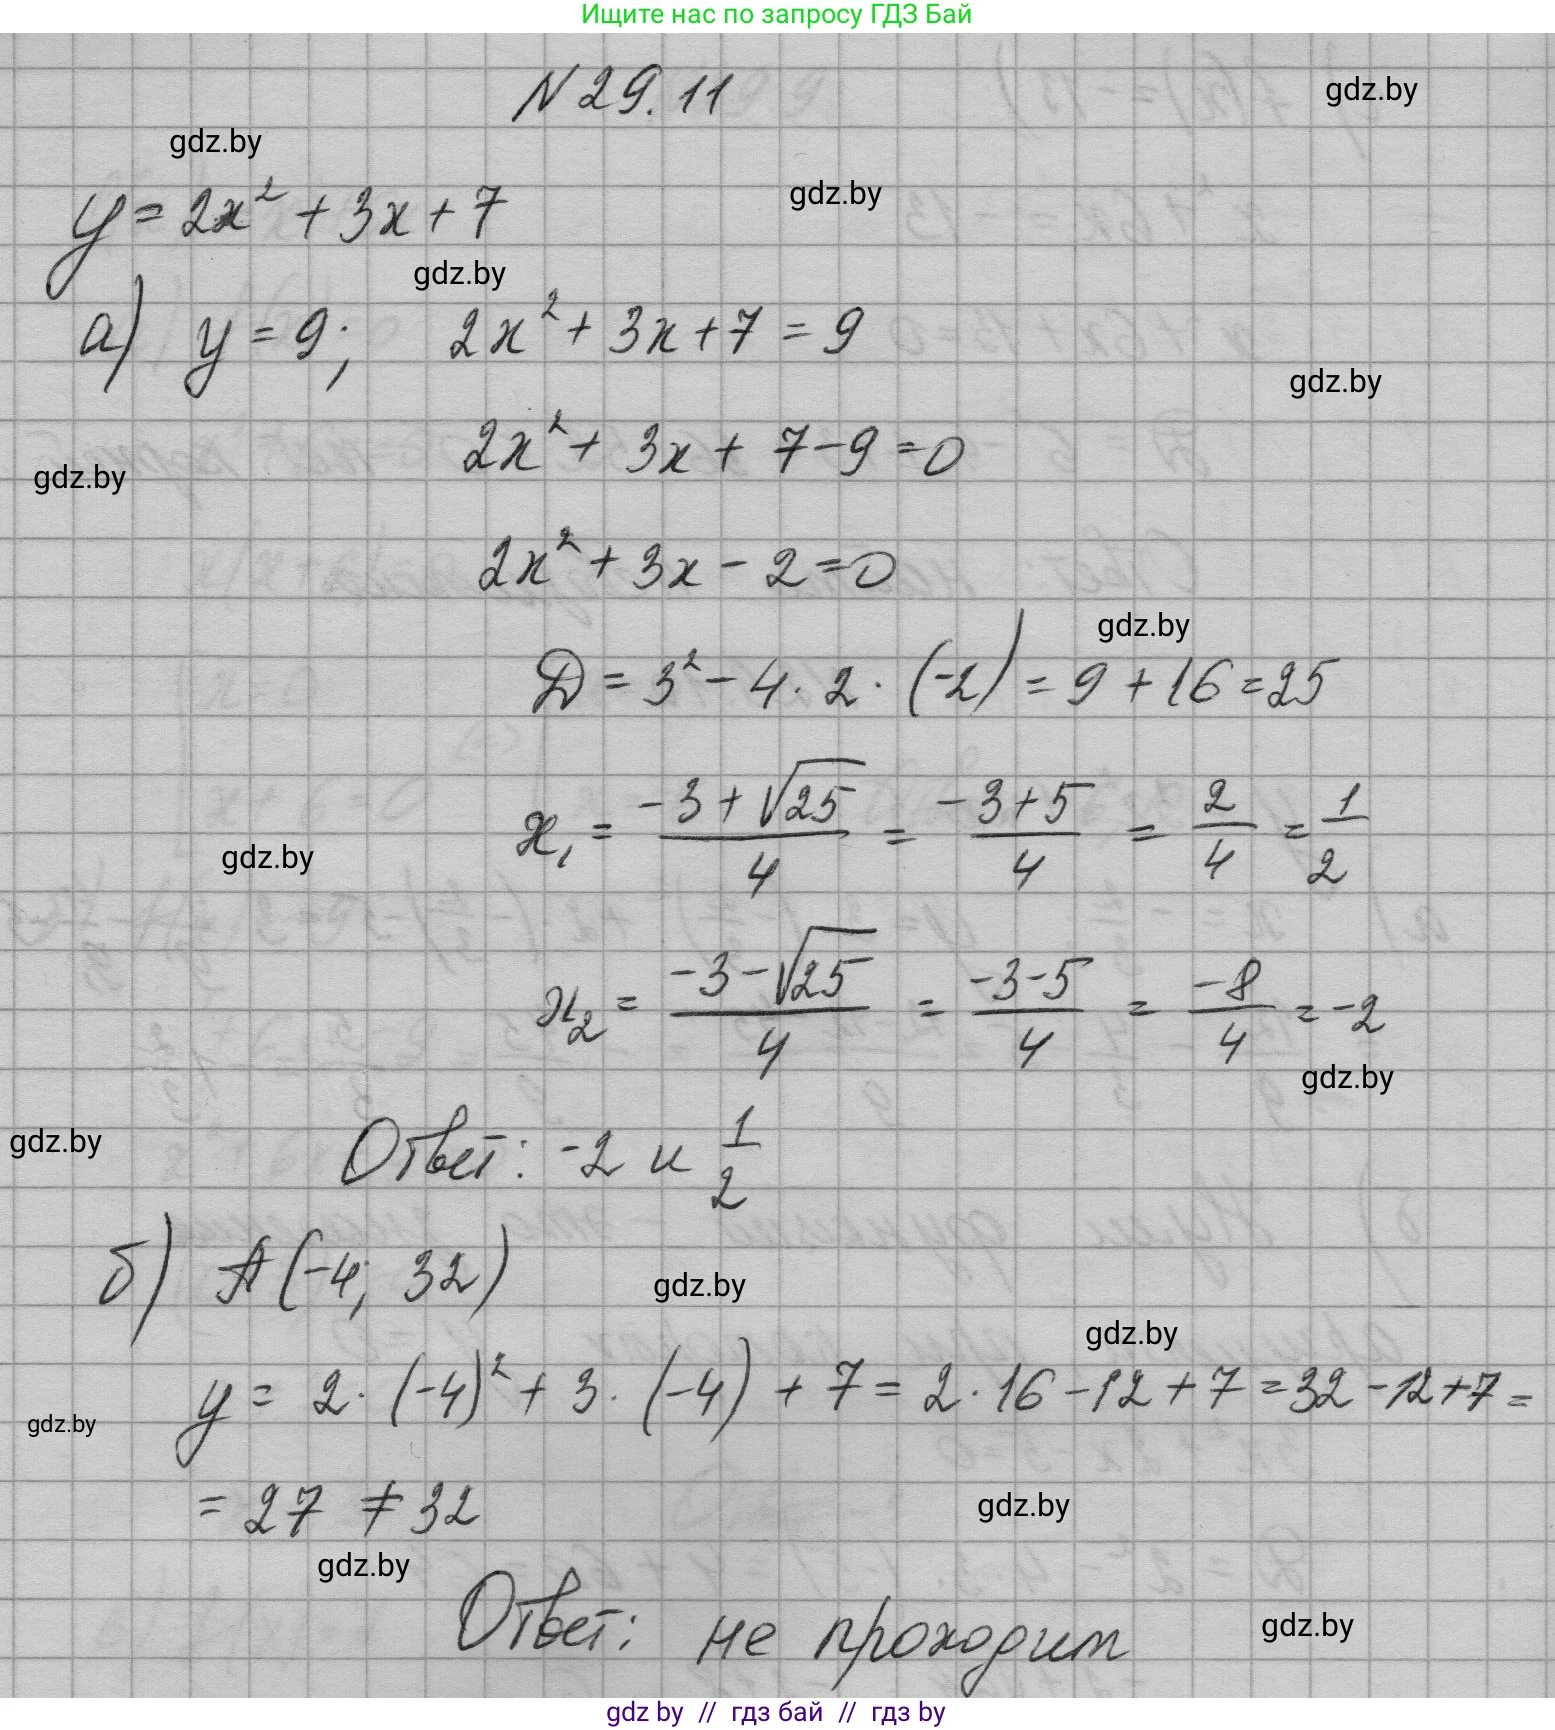 Ищите нас по запросу ГДЗ Бай
N 29.11
gdz.by
gdz.by
gdz.by
y = 2x² + 3x + 7
gdz.by
а) y = 9; 2x² + 3x + 7 = 9
gdz.by
2x² + 3x + 7 - 9 = 0
gdz.by
2x² + 3x - 2 = 0
gdz.by
D = 3² - 4 · 2 · (-2) = 9 + 16 = 25
x₁ = (-3 + √25)/4 = (-3 + 5)/4 = 2/4 = 1/2
gdz.by
x₂ = (-3 - √25)/4 = (-3 - 5)/4 = -8/4 = -2
gdz.by
gdz.by
Ответ: -2 и 1/2
б) A (-4; 32)
gdz.by
gdz.by
y = 2 · (-4)² + 3 · (-4) + 7 = 2 · 16 - 12 + 7 = 32 - 12 + 7 =
gdz.by
= 27 ≠ 32
gdz.by
gdz.by
Ответ: не проходит
gdz.by
gdz by // гдз бай // гдз by